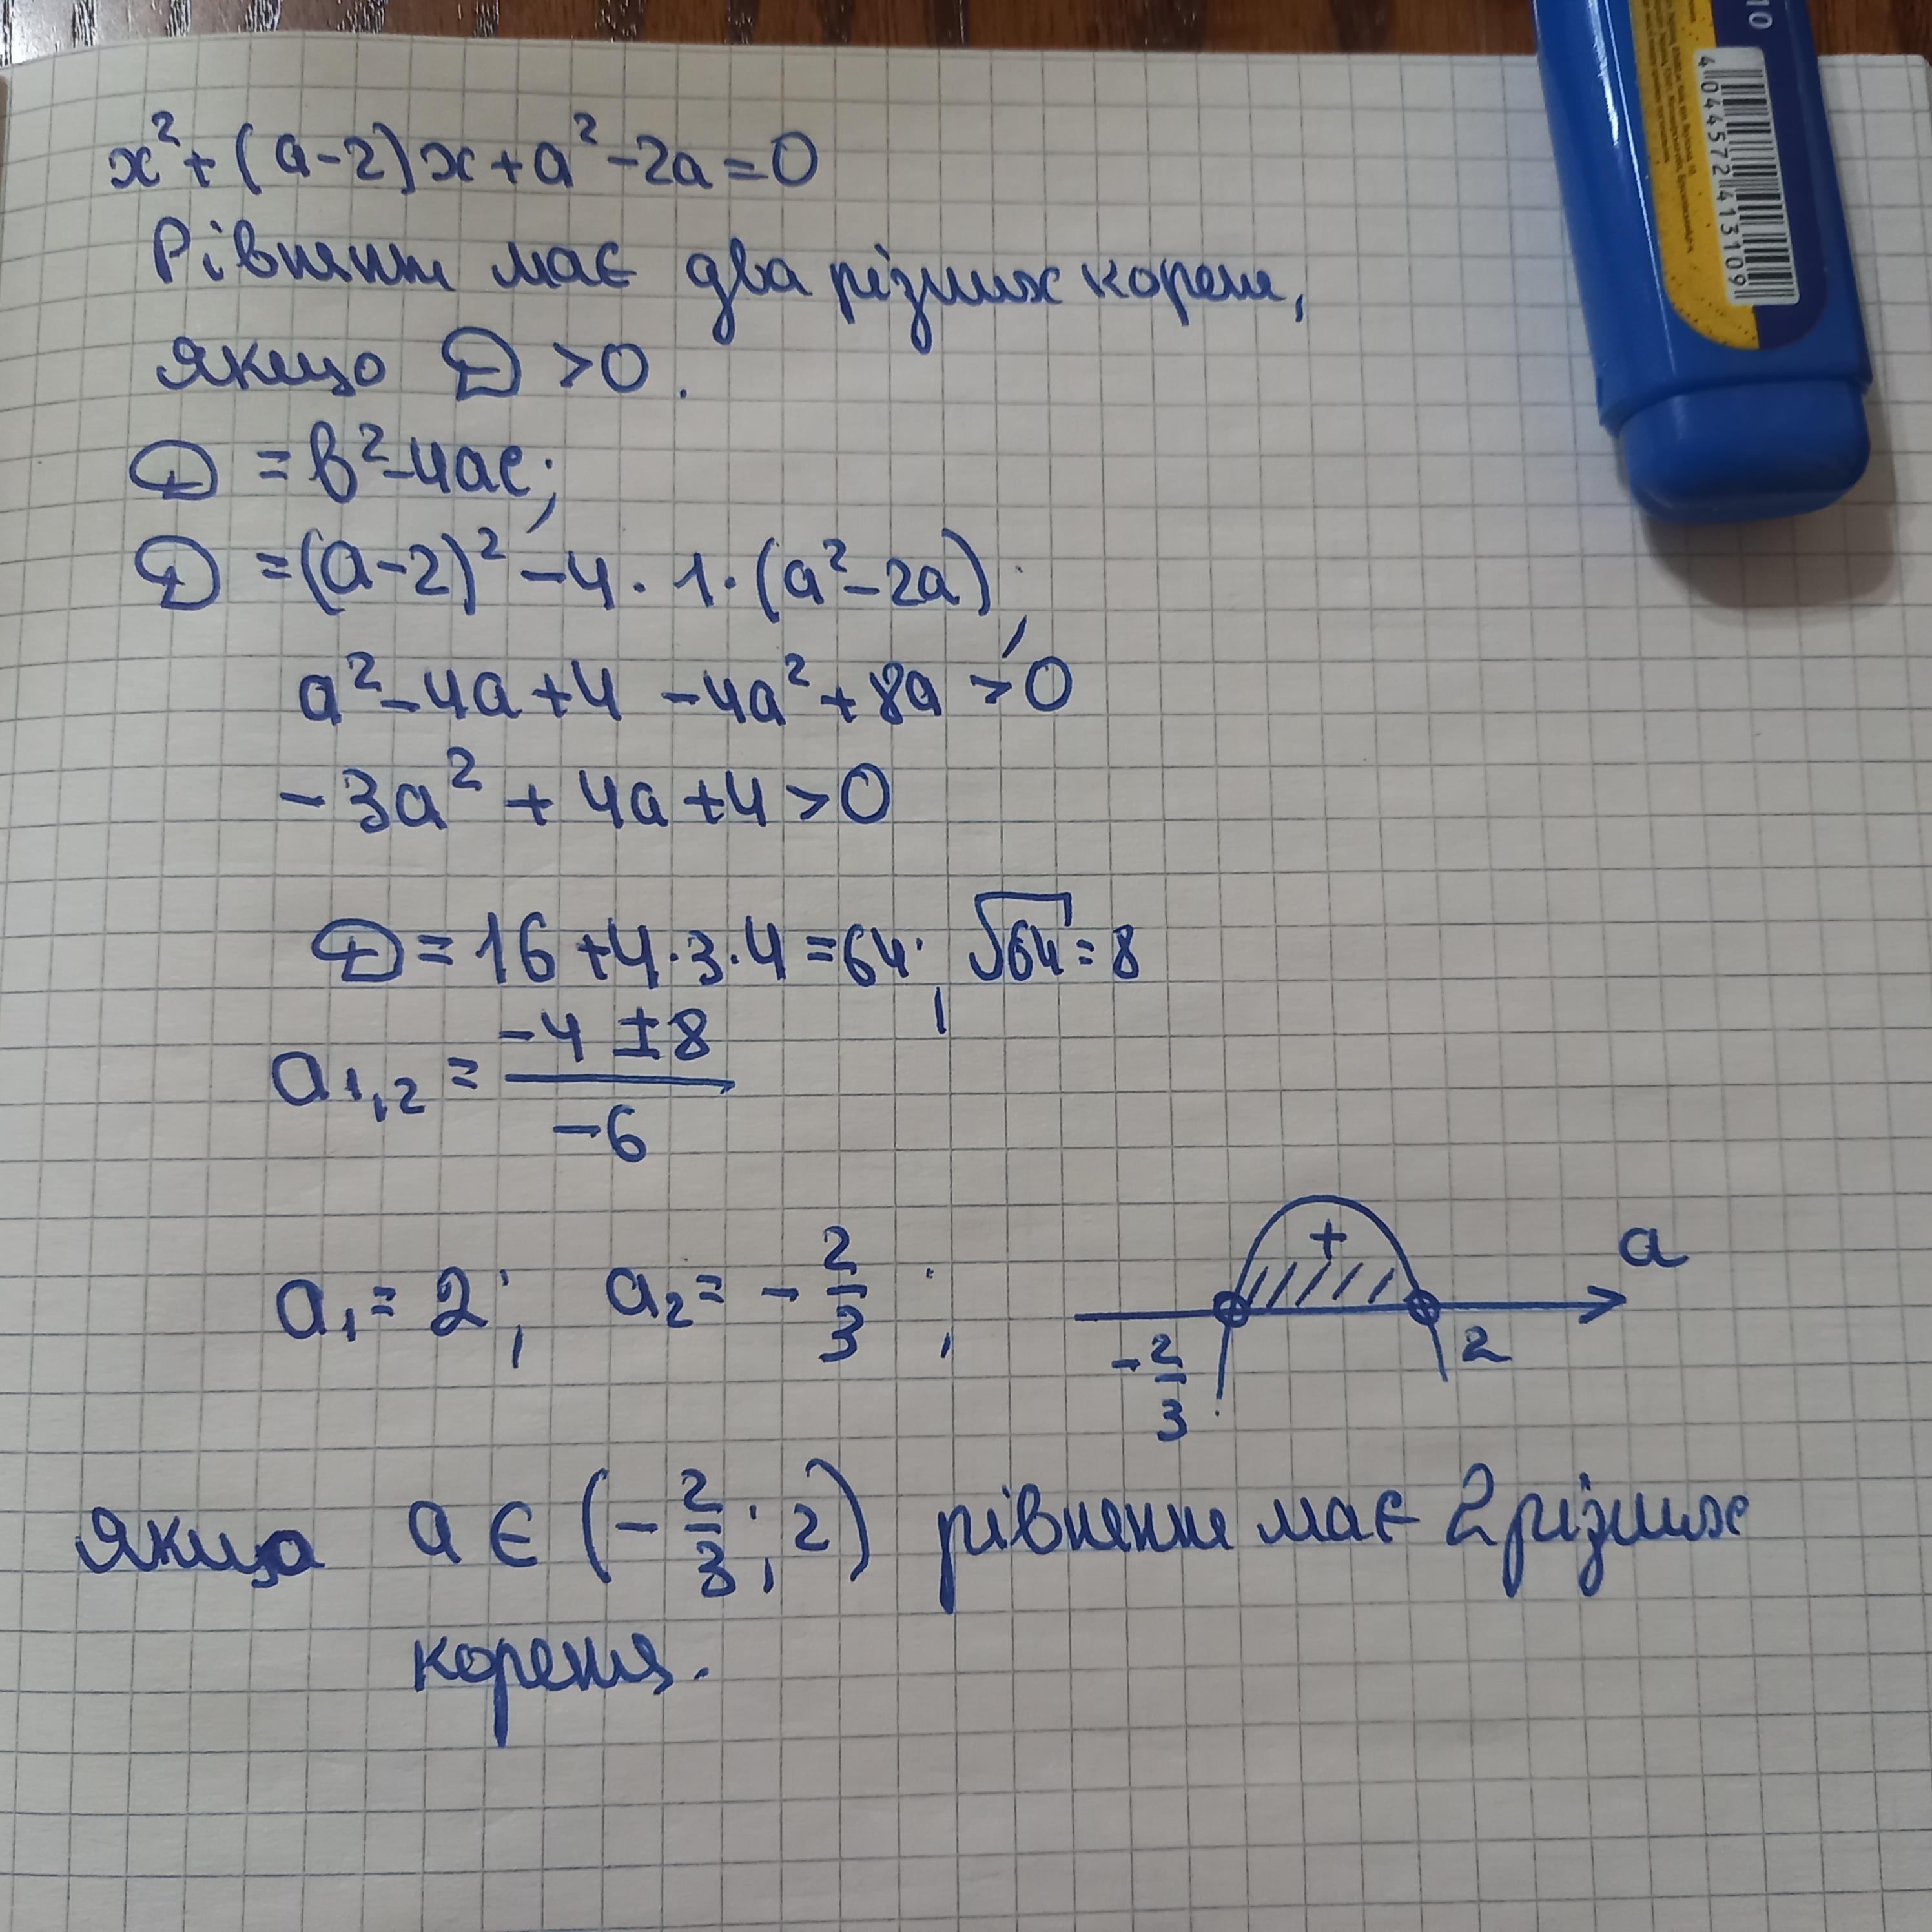 x² + (a-2)x + a² - 2a = 0
Рівняння має два різних кореня,
якщо D > 0.
D = b² - 4ac;
D = (a-2)² - 4 · 1 · (a² - 2a);
a² - 4a + 4 - 4a² + 8a > 0
-3a² + 4a + 4 > 0
D = 16 + 4 · 3 · 4 = 64; √64 = 8
a₁,₂ = (-4 ± 8)/(-6)
a₁ = 2; a₂ = -2/3;
+ a
-2/3 2
Якщо a ∈ (-2/3; 2) рівняння має 2 різних
кореня.
10
4 044572 413109